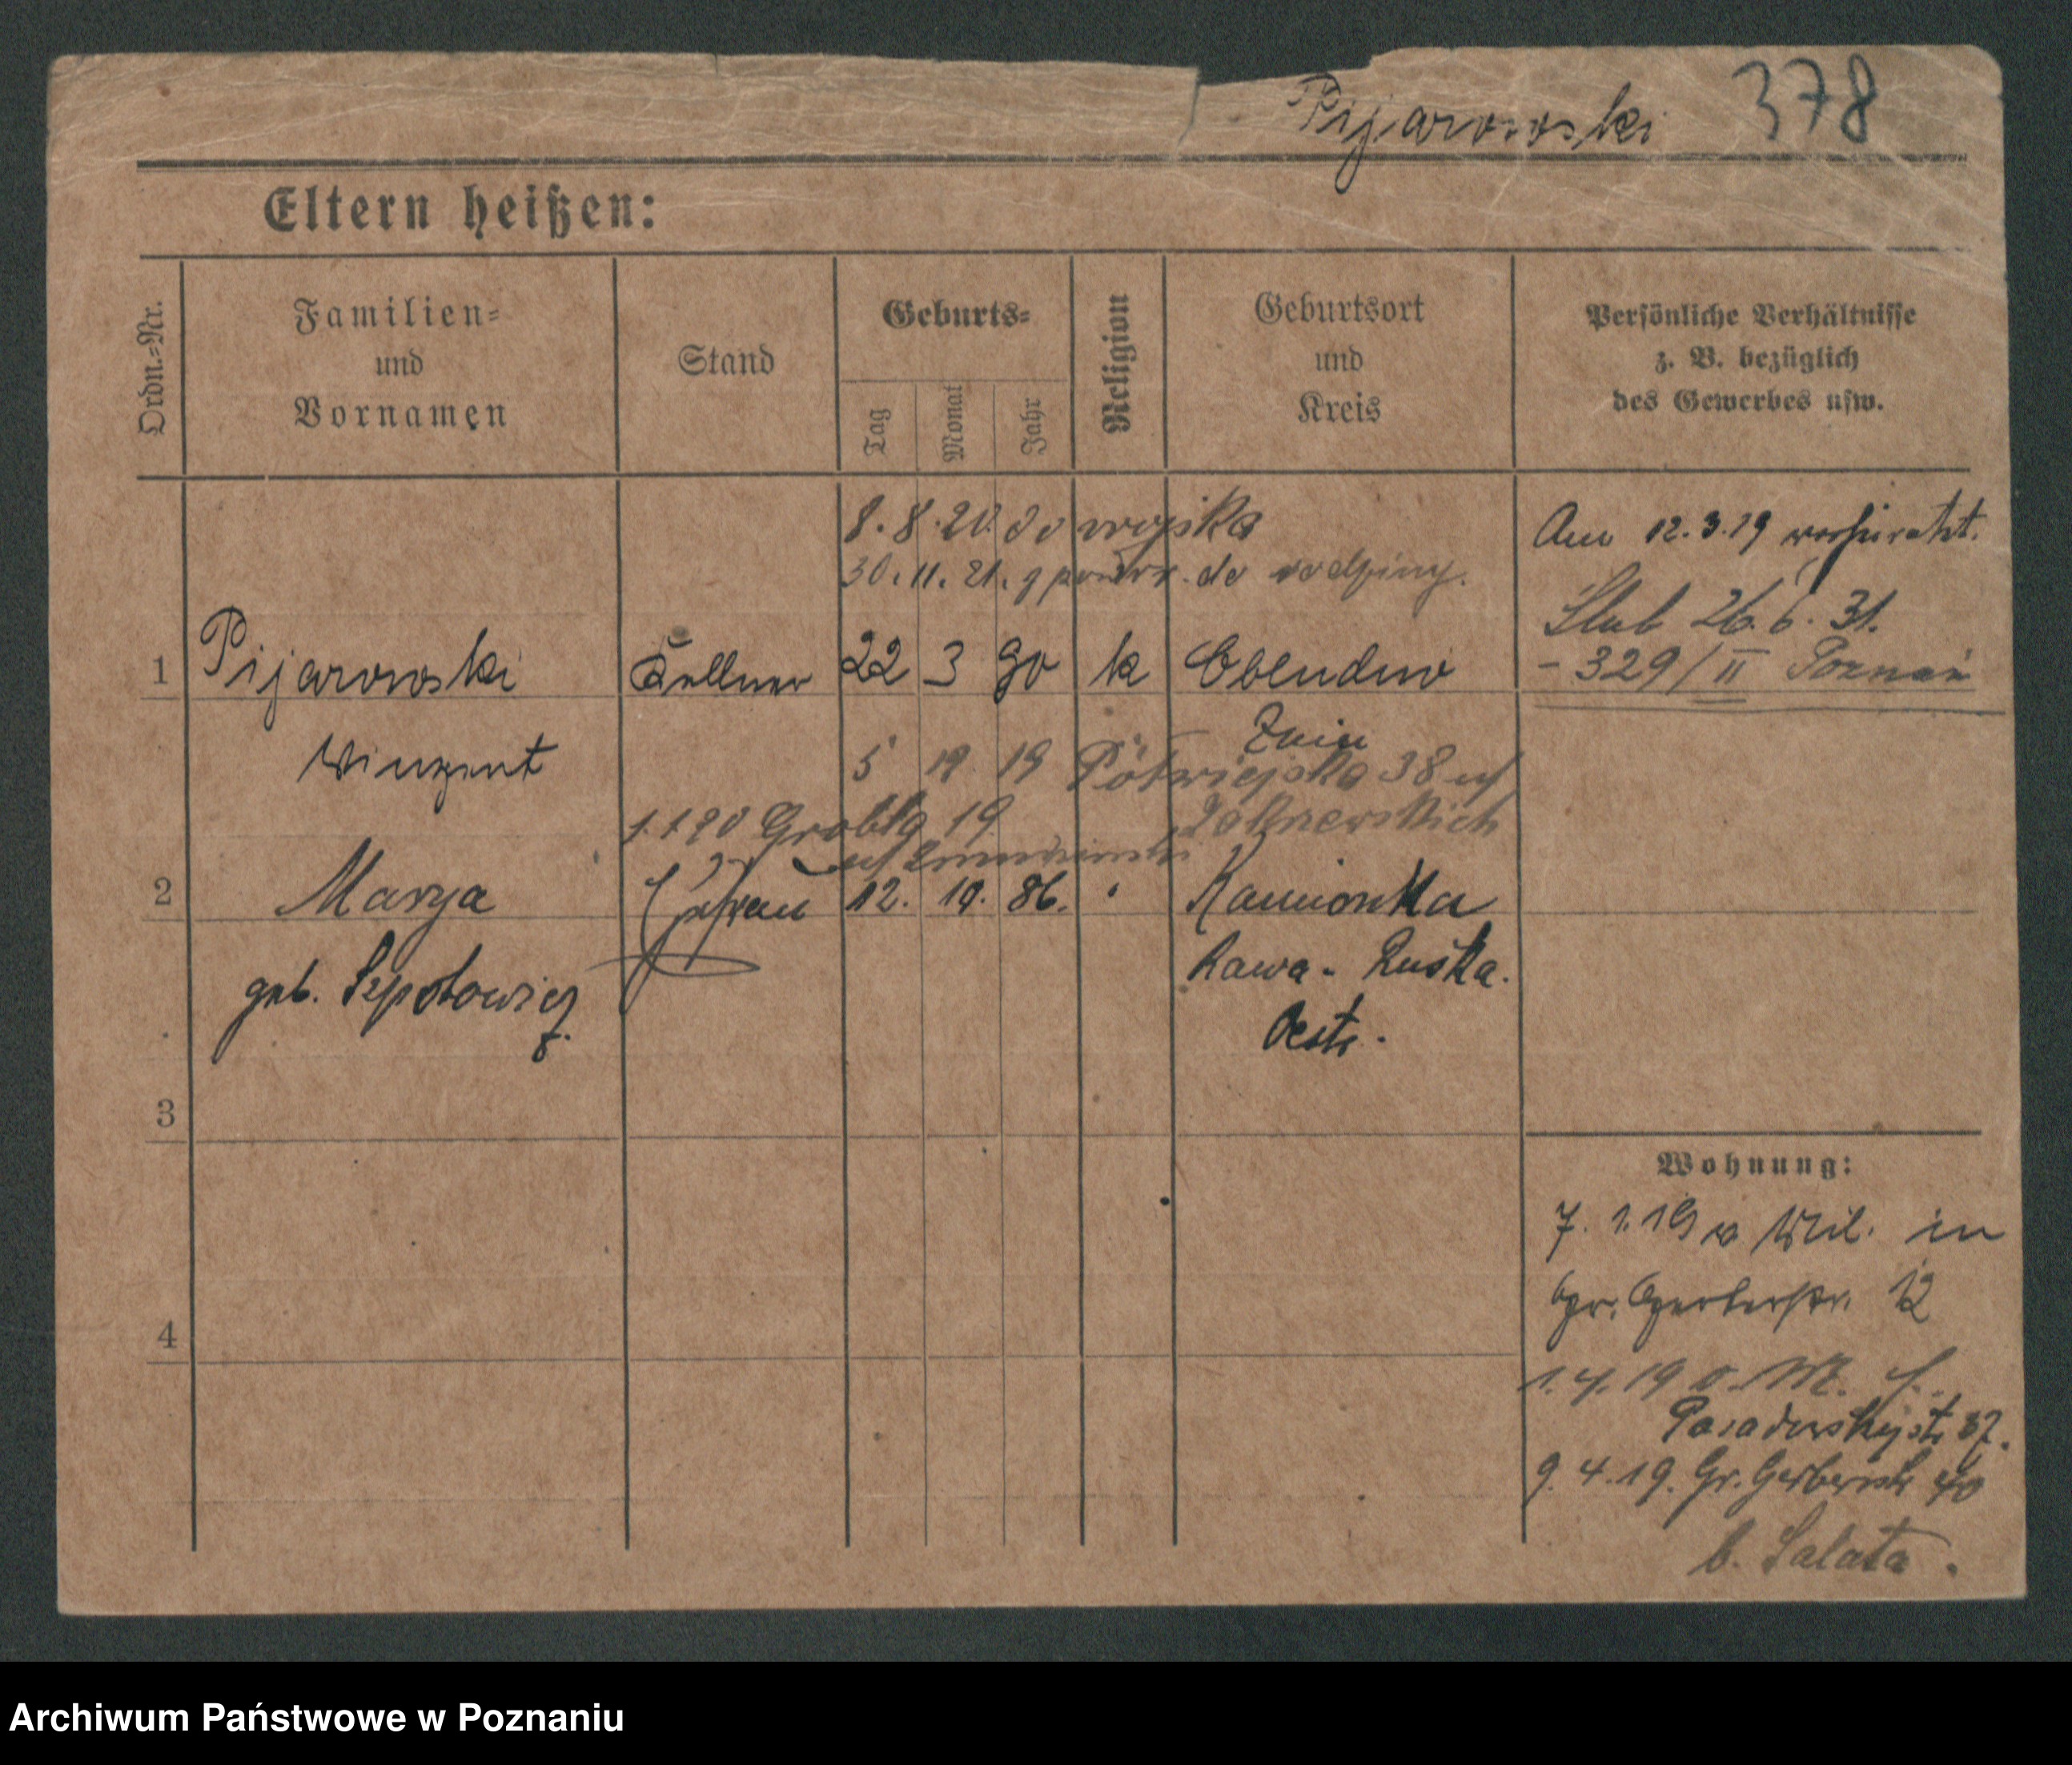 Pijarowski 378
Eltern heißen:
Ordn.=Nr.
Familien=
und
Vornamen
Stand
Geburts=
Tag
Monat
Jahr
Religion
Geburtsort
und
Kreis
Persönliche Verhältnisse
z. B. bezüglich
des Gewerbes usw.
8. 8. 20. do wojska
30. 11. 21. z powr. do rodziny.
Am 12.3.19 verheiratet.
Ślub 26. 6. 31.
- 329/II Poznań
1 Pijarowski Kellner 22 3 90 k
Znin
Winzent
5 19 19 Półwiejska 38 u/
1.1.20 Grobla 19
2 Marya Ehefrau 12. 10. 86. " Kamionka
geb. Szpotowicz Rawa - Ruska.
Oestr.
3
4
Wohnung:
7. 1. 19 v. Mil. in
Gr. Gerberstr. 12
1. 4. 19 v. M. f.
Posadowskystr 37.
9. 4. 19. Gr. Gerberstr 40
b. Salata.
Archiwum Państwowe w Poznaniu